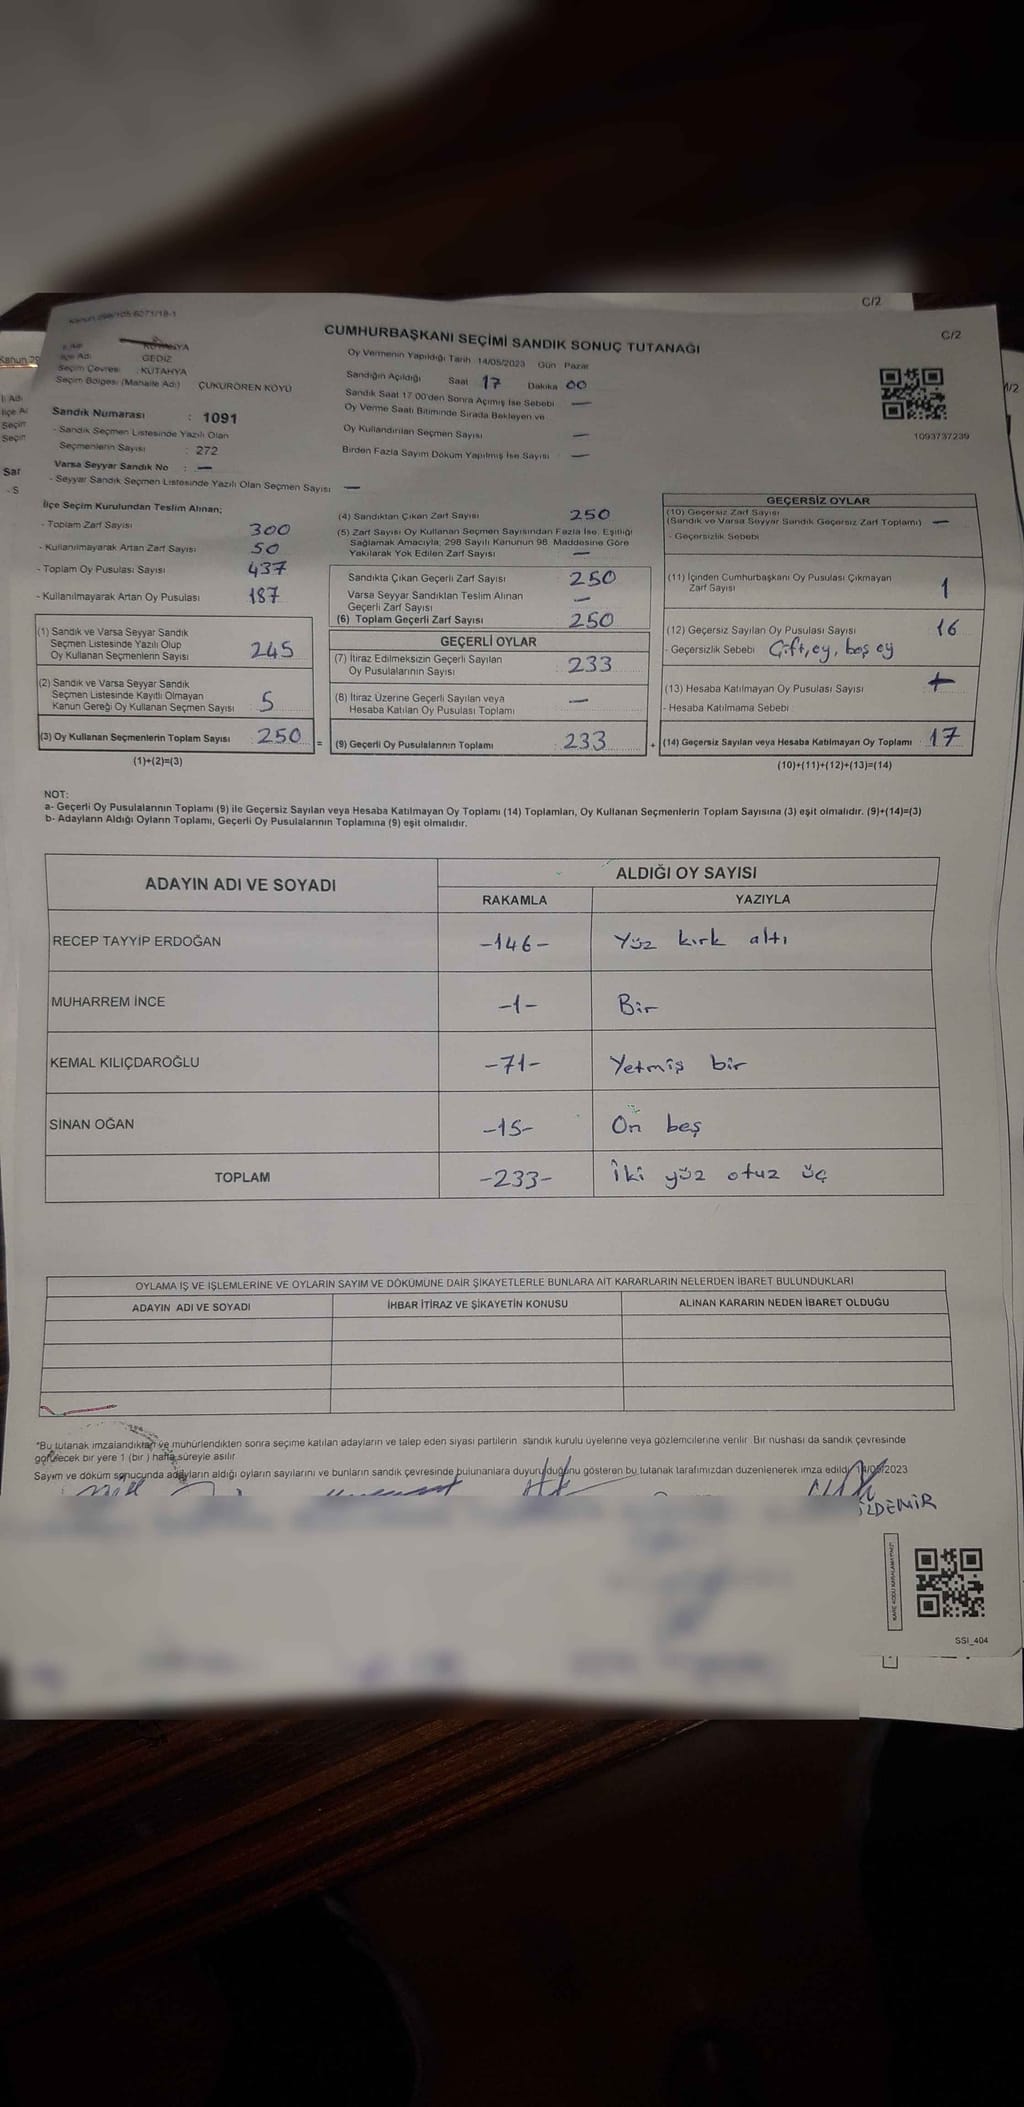 C/2
Kanun 298/105 6271/18-1
CUMHURBAŞKANI SEÇİMİ SANDIK SONUÇ TUTANAĞI
C/2
İl Adı KÜTAHYA
İlçe Adı GEDİZ
Seçim Çevresi : KÜTAHYA
Seçim Bölgesi (Mahalle Adı) ÇUKURÖREN KÖYÜ
Sandık Numarası : 1091
- Sandık Seçmen Listesinde Yazılı Olan
Seçmenlerin Sayısı : 272
Varsa Seyyar Sandık No : —
- Seyyar Sandık Seçmen Listesinde Yazılı Olan Seçmen Sayısı —
Oy Vermenin Yapıldığı Tarih 14/05/2023 Gün Pazar
Sandığın Açıldığı Saat 17 Dakika 00
Sandık Saat 17.00'den Sonra Açımış İse Sebebi —
Oy Verme Saati Bitiminde Sırada Bekleyen ve
Oy Kullandırılan Seçmen Sayısı —
Birden Fazla Sayım Döküm Yapılmış İse Sayısı —
1093737239
İlçe Seçim Kurulundan Teslim Alınan;
- Toplam Zarf Sayısı 300
- Kullanılmayarak Artan Zarf Sayısı 50
- Toplam Oy Pusulası Sayısı 437
- Kullanılmayarak Artan Oy Pusulası 187
(1) Sandık ve Varsa Seyyar Sandık
Seçmen Listesinde Yazılı Olup
Oy Kullanan Seçmenlerin Sayısı 245
(2) Sandık ve Varsa Seyyar Sandık
Seçmen Listesinde Kayıtlı Olmayan
Kanun Gereği Oy Kullanan Seçmen Sayısı 5
(3) Oy Kullanan Seçmenlerin Toplam Sayısı 250 =
(1)+(2)=(3)
(4) Sandıktan Çıkan Zarf Sayısı 250
(5) Zarf Sayısı Oy Kullanan Seçmen Sayısından Fazla İse, Eşitliği
Sağlamak Amacıyla, 298 Sayılı Kanunun 98. Maddesine Göre
Yakılarak Yok Edilen Zarf Sayısı —
Sandıkta Çıkan Geçerli Zarf Sayısı 250
Varsa Seyyar Sandıktan Teslim Alınan
Geçerli Zarf Sayısı —
(6) Toplam Geçerli Zarf Sayısı 250
GEÇERLİ OYLAR
(7) İtiraz Edilmeksizin Geçerli Sayılan
Oy Pusulalarının Sayısı 233
(8) İtiraz Üzerine Geçerli Sayılan veya
Hesaba Katılan Oy Pusulası Toplamı —
(9) Geçerli Oy Pusulalarının Toplamı 233 +
GEÇERSİZ OYLAR
(10) Geçersiz Zarf Sayısı
(Sandık ve Varsa Seyyar Sandık Geçersiz Zarf Toplamı) —
- Geçersizlik Sebebi
(11) İçinden Cumhurbaşkanı Oy Pusulası Çıkmayan
Zarf Sayısı 1
(12) Geçersiz Sayılan Oy Pusulası Sayısı 16
- Geçersizlik Sebebi Çift, ey, boş ey
(13) Hesaba Katılmayan Oy Pusulası Sayısı
- Hesaba Katılmama Sebebi
(14) Geçersiz Sayılan veya Hesaba Katılmayan Oy Toplamı 17
(10)+(11)+(12)+(13)=(14)
NOT:
a- Geçerli Oy Pusulalarının Toplamı (9) ile Geçersiz Sayılan veya Hesaba Katılmayan Oy Toplamı (14) Toplamları, Oy Kullanan Seçmenlerin Toplam Sayısına (3) eşit olmalıdır. (9)+(14)=(3)
b- Adayların Aldığı Oyların Toplamı, Geçerli Oy Pusulalarının Toplamına (9) eşit olmalıdır.
ADAYIN ADI VE SOYADI
ALDIĞI OY SAYISI
RAKAMLA YAZIYLA
RECEP TAYYİP ERDOĞAN -146- Yüz kırk altı
MUHARREM İNCE -1- Bir
KEMAL KILIÇDAROĞLU -71- Yetmiş bir
SİNAN OĞAN -15- On beş
TOPLAM -233- İki yüz otuz üç
OYLAMA İŞ VE İŞLEMLERİNE VE OYLARIN SAYIM VE DÖKÜMÜNE DAİR ŞİKAYETLERLE BUNLARA AİT KARARLARIN NELERDEN İBARET BULUNDUKLARI
ADAYIN ADI VE SOYADI İHBAR İTİRAZ VE ŞİKAYETİN KONUSU ALINAN KARARIN NEDEN İBARET OLDUĞU
"Bu tutanak imzalandıktan ve mühürlendikten sonra seçime katılan adayların ve talep eden siyasi partilerin sandık kurulu üyelerine veya gözlemcilerine verilir. Bir nüshası da sandık çevresinde
görülecek bir yere 1 (bir) hafta süreyle asılır
Sayım ve döküm sonucunda adayların aldığı oyların sayılarını ve bunların sandık çevresinde bulunanlara duyurulduğunu gösteren bu tutanak tarafımızdan düzenlenerek imza edildi 14/05/2023
SSI_404